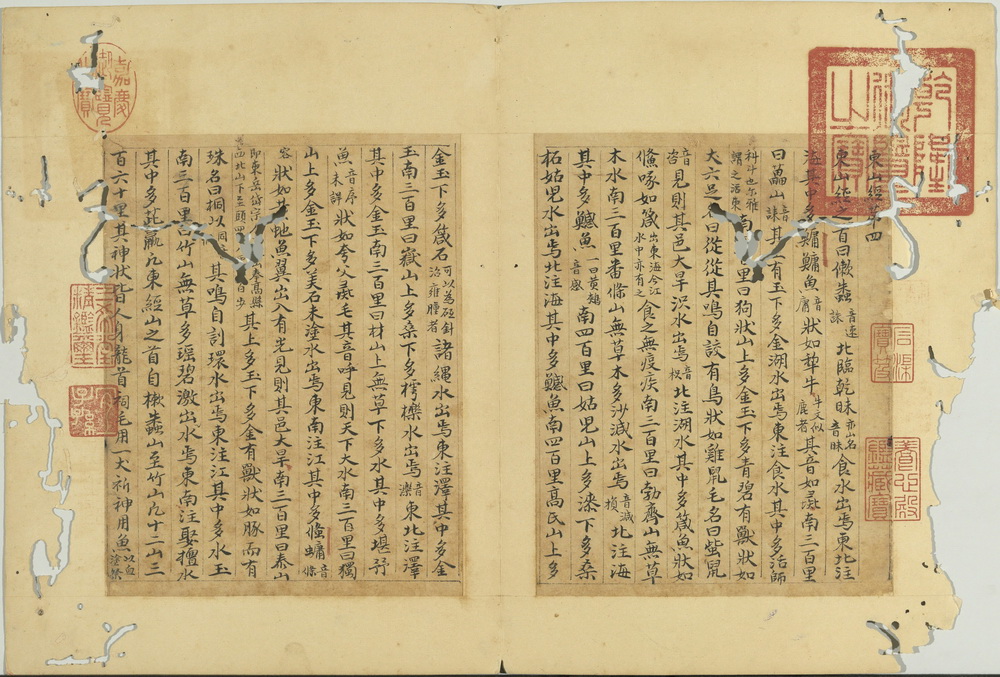 東山經苐四
東山經之首曰樕䗤音速誅北臨乾昧亦山名音昧食水出焉東北注
海其中多鱅鱅魚音庸狀如犂牛牛又似鹿者其音如彘南三百里
曰藟山音誄其上有玉下多金湖水出焉東注食水其中多活師
科斗也尔雅謂之活東南里曰狗狀山上多金玉下多青碧有獸狀如
犬六足名曰從從其鳴自詨有鳥狀如雞鼠毛名曰蚩鼠
音咨見則其邑大旱沢水出焉音枳北注湖水其中多箴魚狀如
鯈喙如箴出東海今江水中亦有之食之無疫疾南三百里曰勃齊山無草
木水南三百里番條山無草木多沙減水出焉音減損北注海
其中多鱤魚一曰黄頰音感南四百里曰姑児山上多漆下多桑
柘姑児水出焉北注海其中多鱤魚南四百里高氏山上多
金玉下多箴石可以為砭針治癰腫者諸繩水出焉東注澤其中多金
玉南三百里曰嶽山上多桑下多樗櫟水出焉音濼東北注澤
其中多金玉南三百里曰材山上無草下多水其中多堪㐨
魚音序未詳狀如夸父彘毛其音呼見則天下大水南三百里曰獨
山上多金玉下多美石末塗水出焉東南注江其中多鯈䗤音條
容狀如黄虵魚翼出入有光見則其邑大旱南三百里曰泰山
即東岳岱宗奉髙縣西北山下至頭四百步其上多玉下多金有獸狀如豚而有
珠名曰狪狪以同音其鳴自訆環水出焉東注江其中多水玉
南三百里曰竹山無草多瑶碧激出水焉東南注娶檀水
其中多茈蠃凡東經山之首自樕䗤山至竹山凡十二山三
百六十里其神狀皆人身龍首祠毛用一犬祈神用魚以血塗祭
乾隆御覽之寳
嘉慶御覽之寳
石渠寳笈
養心殿鑑藏寳
三希堂精鑑璽
宜子孫